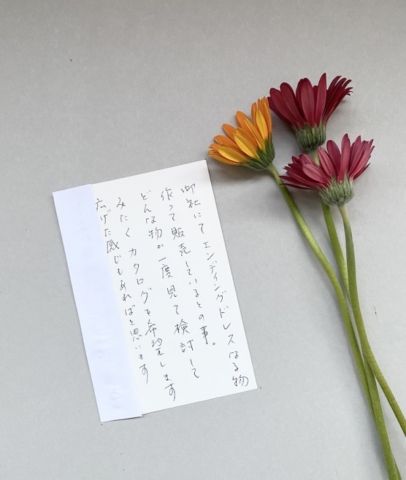 御社にてエンディングドレスなる物
作って販売しているとの事。
どんな物か一度見て検討して
みたくカタログを希望します
広げた感じもあればと思います